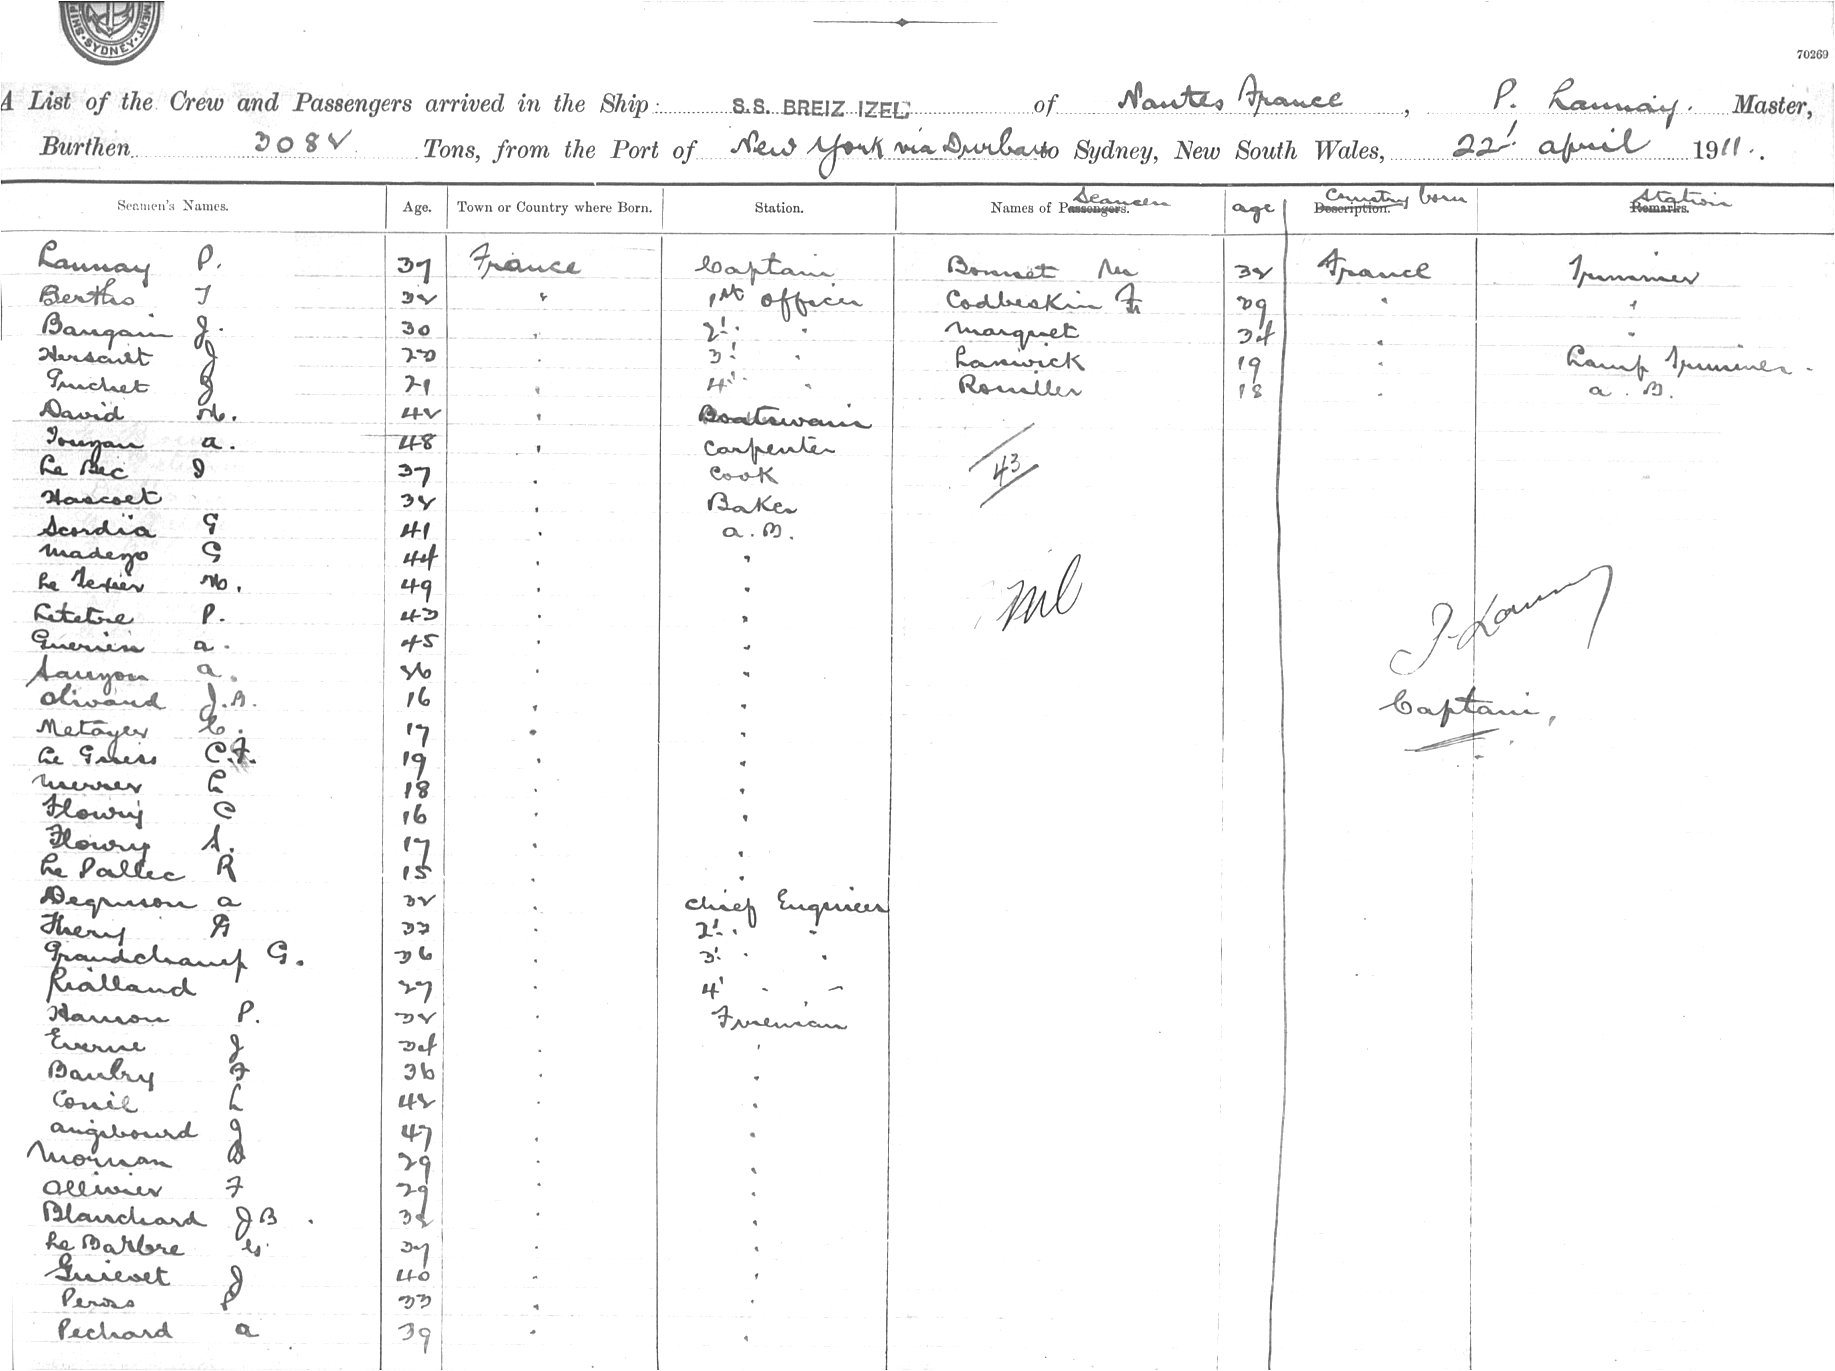 SYDNEY
70269
A List of the Crew and Passengers arrived in the Ship: S.S. BREIZ IZEL of Nantes France, P. Launay. Master,
Burthen 3082 Tons, from the Port of New York via Durban to Sydney, New South Wales, 22' april 1911.
Seamen's Names. Age. Town or Country where Born. Station. Names of Passengers. Seamen age Description. Country born Remarks. Station
Launay P. 37 France Captain Bonnet 32 France Trimmer
Bertho 32 " 1st Officer Codbeskin 29 " "
Baugain J. 30 " 2' " Marquet 34 " "
Hersault J 23 " 3' " Lanwick 19 " Lamp Trimmer.
Guichet J 21 " 4' " Romiller 18 " a. B.
David M. 42 " Boatswain
a. 48 " Carpenter
Le Bec J 37 " Cook
43
Hascoet 32 " Baker
Scordia G 41 " a. B.
Madezo G 44 " "
Le Texier M. 49 " "
P. 43 " "
nil
Guerien a. 45 " "
a. 36 " "
P. Launay
Olivaud J.B. 16 " "
Captain,
Metayer C. 17 " "
Le Guess C.F. 19 " "
Merrer L 18 " "
Flowry C 16 " "
Flowry S. 17 " "
Le Pallec R 15 " "
a 32 " Chief Engineer
Thery F 33 " 2' " "
Grandchamp G. 36 " 3' " "
Rialland 27 " 4' " "
Hamon P. 32 " Fireman
Evenne J 34 " "
Baudry F 36 " "
Conil L 42 " "
Angibourd J 47 " "
Morvan 29 " "
Ollivier F 29 " "
Blanchard J B. 32 " "
Le Barbre 37 " "
J 40 " "
Peross P 33 " "
Pechard a 39 " "